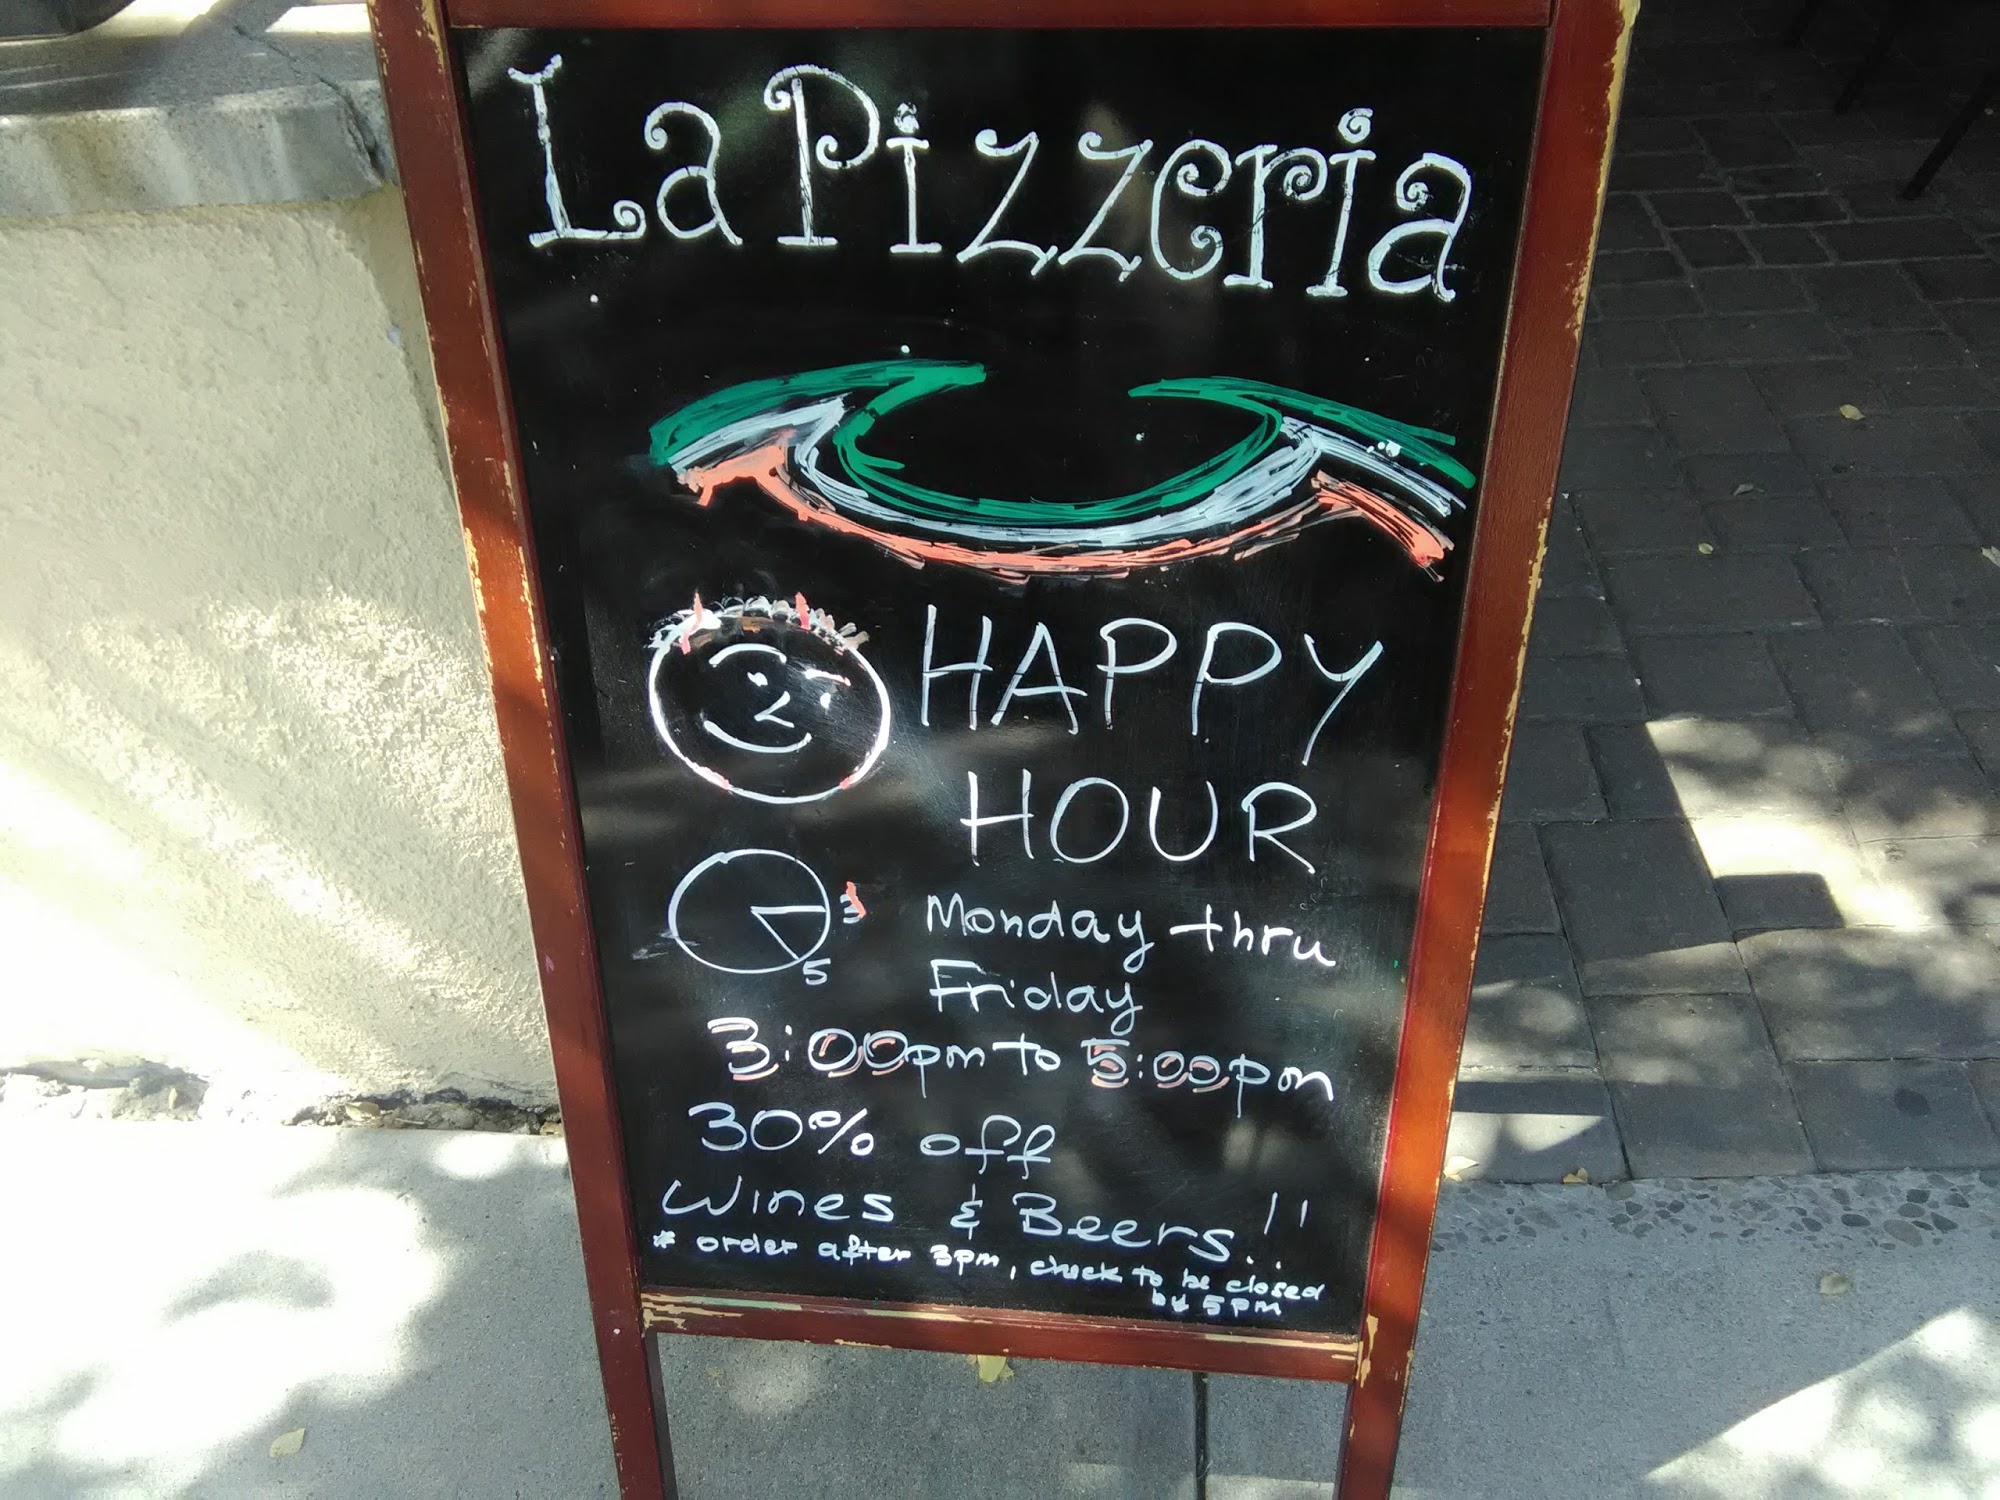 La Pizzeria
HAPPY
HOUR
3
5
Monday thru
Friday
3:00pm to 5:00pm
30% off
Wines & Beers!!
* order after 3pm, check to be closed
by 5pm